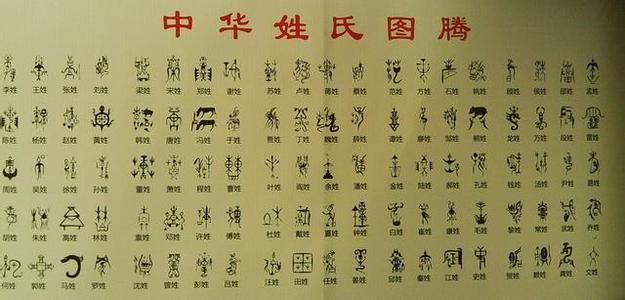 中华姓氏图腾
李姓 王姓 张姓 刘姓 梁姓 宋姓 郑姓 谢姓 苏姓 卢姓 蒋姓 蔡姓 范姓 方姓 石姓 姚姓 顾姓 侯姓 邵姓 孟姓
陈姓 杨姓 赵姓 黄姓 韩姓 唐姓 冯姓 于姓 贾姓 丁姓 魏姓 薛姓 谭姓 廖姓 邹姓 熊姓 龙姓 万姓 段姓 雷姓
周姓 吴姓 徐姓 孙姓 董姓 萧姓 程姓 曹姓 叶姓 阎姓 余姓 潘姓 金姓 陆姓 郝姓 孔姓 钱姓 汤姓 尹姓 葛姓
胡姓 朱姓 高姓 林姓 袁姓 邓姓 许姓 傅姓 杜姓 戴姓 钟姓 白姓 崔姓 康姓 毛姓 黎姓 常姓 武姓 乔姓
何姓 郭姓 马姓 罗姓 沈姓 曾姓 彭姓 吕姓 汪姓 田姓 任姓 姜姓 邱姓 秦姓 江姓 史姓 贺姓 顾姓 龚姓 文姓